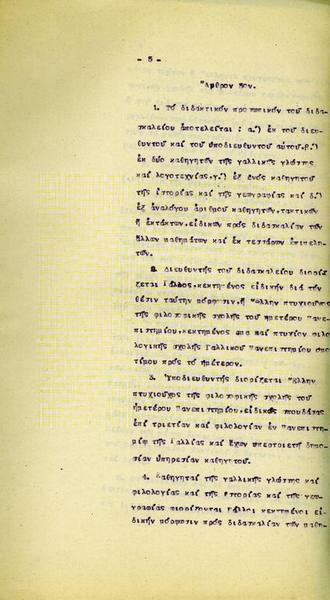 - 5 -
Ἄρθρον 5ον.
1. Τό διδακτικόν προσωπικόν τοῦ διδα-
σκαλείου ἀποτελεῖται : α.') ἐκ τοῦ διευ-
θυντοῦ καί τοῦ ὑποδιευθυντοῦ αὐτοῦ.β.')
ἐκ δύο καθηγητῶν τῆς γαλλικῆς γλώσσης
καί λογοτεχνίας.γ.') ἐξ ἑνός καθηγητοῦ
τῆς ἱστορίας καί τῆς γεωγραφίας καί δ.')
ἐξ ἀναλόγου ἀριθμοῦ καθηγητῶν.τακτικῶν
ἤ ἐκτάκτων.εἰδικῶν πρός διδασκαλίαν τῶν
ἄλλων μαθημάτων καί ἐκ τεσσάρων ἐπιμελη-
τῶν.
2. Διευθυντής τοῦ διδασκαλείου διορί-
ζεται Γάλλος.κεκτημένος εἰδικήν διά τήν
θέσιν ταύτην μόρφωσιν.ἤ Ἕλλην πτυχιοῦχος
τῆς φιλοσοφικῆς σχολῆς τοῦ ἡμετέρου Πανε-
πιστημίου.κεκτημένος ἅμα καί πτυχίον φιλο-
λογικῆς σχολῆς Γαλλικοῦ Πανεπιστημίου ὁμο-
τίμου πρός τό ἡμέτερον.
3. Ὑποδιευθυντής διορίζεται Ἕλλην
πτυχιοῦχος τῆς φιλοσοφικῆς σχολῆς τοῦ
ἡμετέρου Πανεπιστημίου.εἰδικῶς σπουδάσας
ἐπί τριετίαν καί φιλολογίαν ἐν Πανεπιστη-
μίῳ τῆς Γαλλίας καί ἔχων ὑπερτριετῆ δημο-
σίαν ὑπηρεσίαν καθηγητοῦ.
4. Καθηγηταί τῆς γαλλικῆς γλώσσης καί
φιλολογίας καί τῆς ἱστορίας καί τῆς γεω-
γραφίας διορίζονται Γάλλοι κεκτημένοι εἰ-
δικήν μόρφωσιν πρός διδασκαλίαν τῶν μαθη-